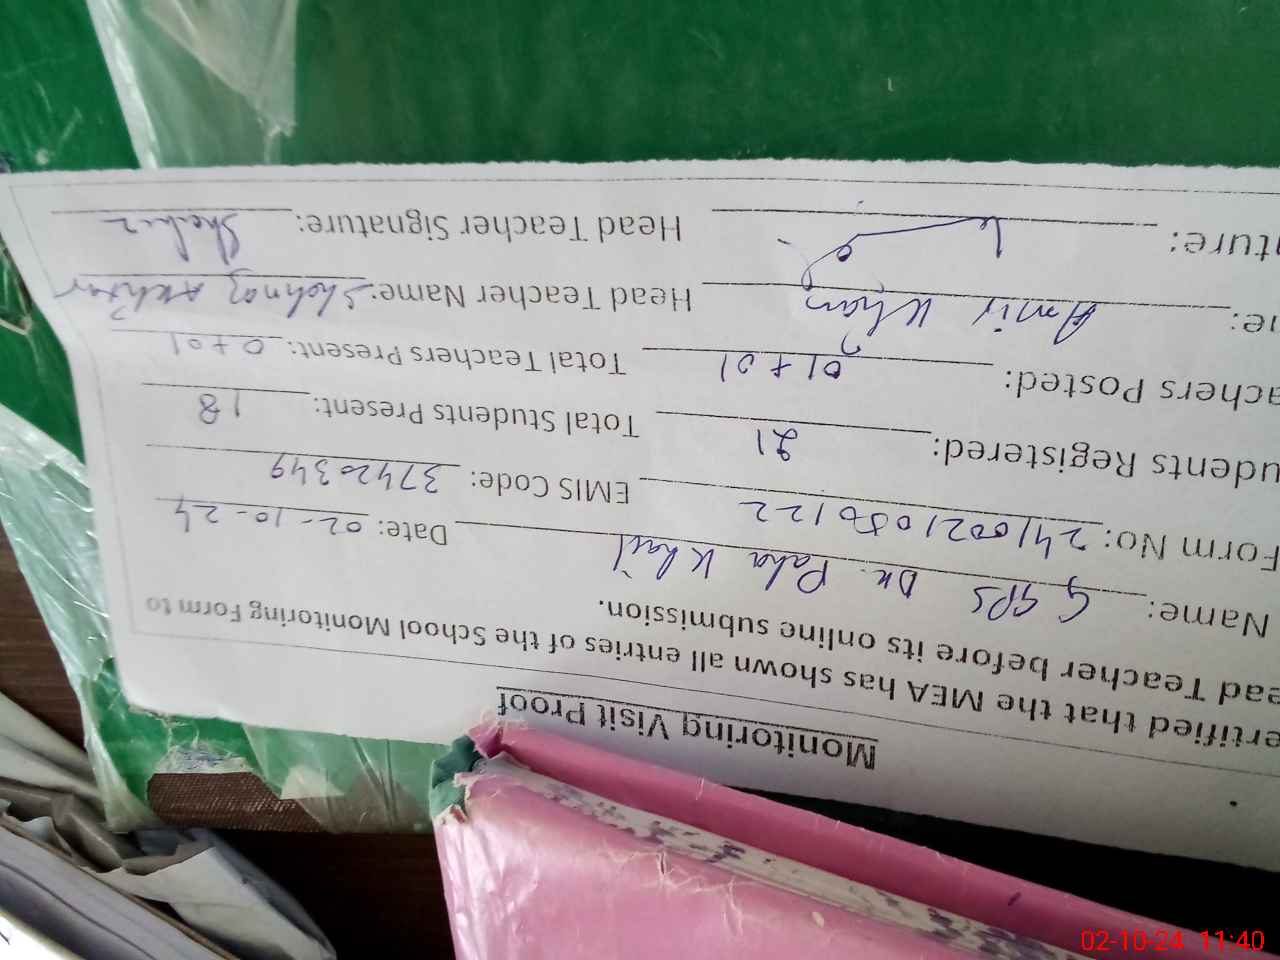 Monitoring Visit Proof
ertified that the MEA has shown all entries of the School Monitoring Form to
ead Teacher before its online submission.
Name: GGPS DK. Paha Khail Date: 02-10-24
Form No: 2410021050122 EMIS Code: 37420349
udents Registered: 21 Total Students Present: 18
achers Posted: 01+01 Total Teachers Present: 0+01
e: Amir Khan Head Teacher Name: Shahnaz Akhtar
ture: Head Teacher Signature:
02-10-24 11:40